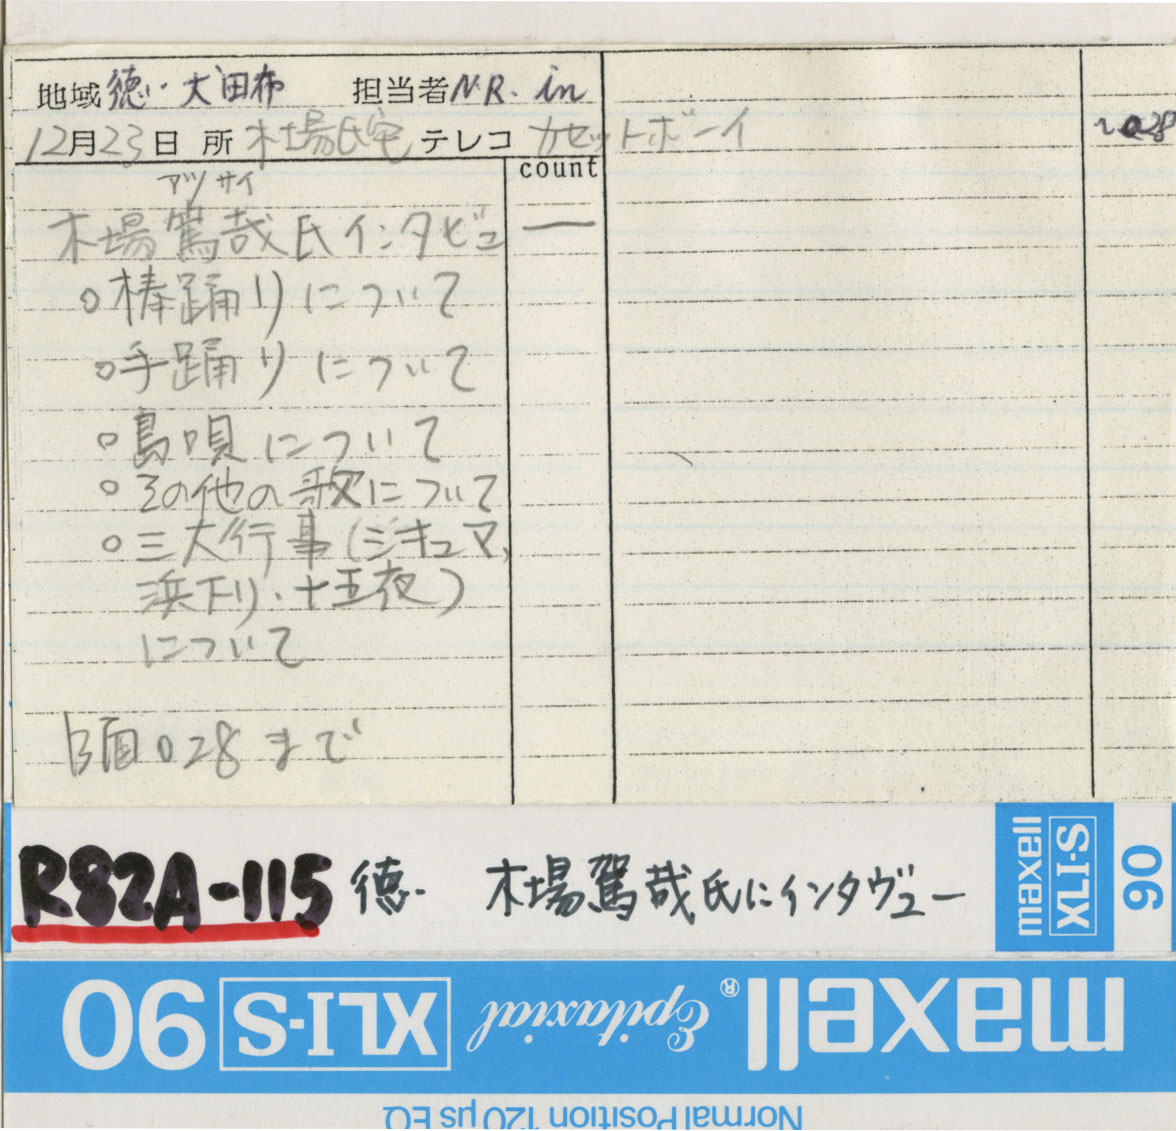 地域 徳・大田布 担当者 N.R. in
12月23日 所 木場氏宅 テレコ カセットボーイ
count
アツ サイ
木場篤哉氏インタビュー
〜028
○棒踊りについて
○手踊りについて
○島唄について
○その他の歌について
○三大行事(ジキュマ,
浜下り・十五夜)
について
B面028まで
R82A-115 徳・ 木場篤哉氏にインタヴュー
maxell
XLI-S
90
maxell® Epitaxial XLI-S 90
Normal Position 120 μs EQ